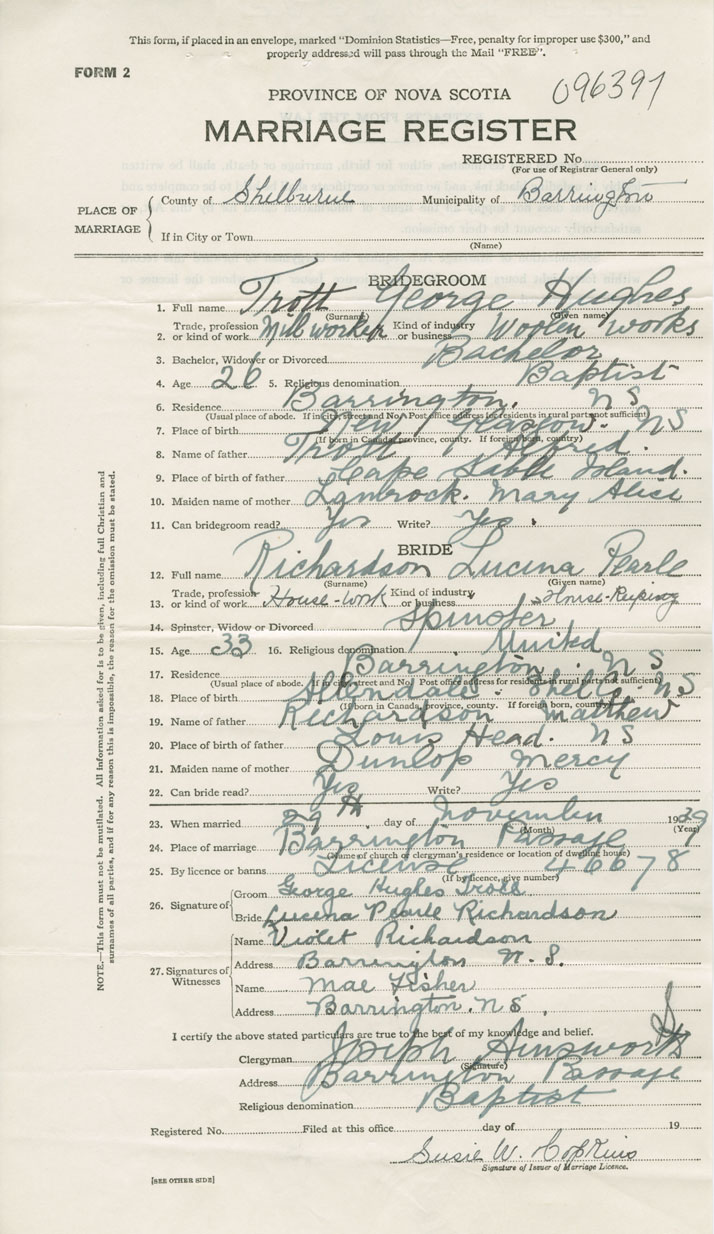 This form, if placed in an envelope, marked "Dominion Statistics—Free, penalty for improper use $300," and
properly addressed will pass through the Mail "FREE".
FORM 2
096391
PROVINCE OF NOVA SCOTIA
MARRIAGE REGISTER
REGISTERED No.
(For use of Registrar General only)
PLACE OF MARRIAGE
County of Shelburne Municipality of Barrington
If in City or Town
(Name)
BRIDEGROOM
1. Full name Trott George Hughes
(Surname) (Given name)
2. Trade, profession or kind of work Mill worker Kind of industry or business Woolen works
3. Bachelor, Widower or Divorced Bachelor
4. Age 26 5. Religious denomination Baptist
6. Residence Barrington. N S
(Usual place of abode. If in city street and No. Post office address for residents in rural parts not sufficient)
7. Place of birth New Glasgow. N S
(If born in Canada, province, county. If foreign born, country)
8. Name of father Trott Alfred.
9. Place of birth of father Cape Sable Island.
10. Maiden name of mother Lamrock. Mary Alice
11. Can bridegroom read? Yes Write? Yes
BRIDE
12. Full name Richardson Lucina Pearle
(Surname) (Given name)
13. Trade, profession or kind of work House-work Kind of industry or business House-Keeping
14. Spinster, Widow or Divorced Spinster
15. Age 33 16. Religious denomination United
17. Residence Barrington. N S
(Usual place of abode. If in city street and No. Post office address for residents in rural parts not sufficient)
18. Place of birth Allendale. Shel. Co. N S
(If born in Canada, province, county. If foreign born, country)
19. Name of father Richardson Matthew
20. Place of birth of father Louis Head. N S
21. Maiden name of mother Dunlop Mercy
22. Can bride read? Yes Write? Yes
23. When married 29th day of November 1939
(Month) (Year)
24. Place of marriage Barrington Passage
(Name of church or clergyman's residence or location of dwelling house)
25. By licence or banns License 46678
(If by licence, give number)
26. Signature of
Groom George Hughes Trott
Bride Lucina Pearle Richardson
27. Signatures of Witnesses
Name Violet Richardson
Address Barrington N. S.
Name Mae Fisher
Address Barrington. N S.
I certify the above stated particulars are true to the best of my knowledge and belief.
Clergyman Joseph Ainsworth
(Signature)
Address Barrington Passage
Religious denomination Baptist
Registered No. Filed at this office day of 19
Susie W. Hopkins
Signature of Issuer of Marriage Licence.
[SEE OTHER SIDE]
NOTE.—This form must not be mutilated. All information asked for is to be given, including full Christian and
surnames of all parties, and if for any reason this is impossible, the reason for the omission must be stated.